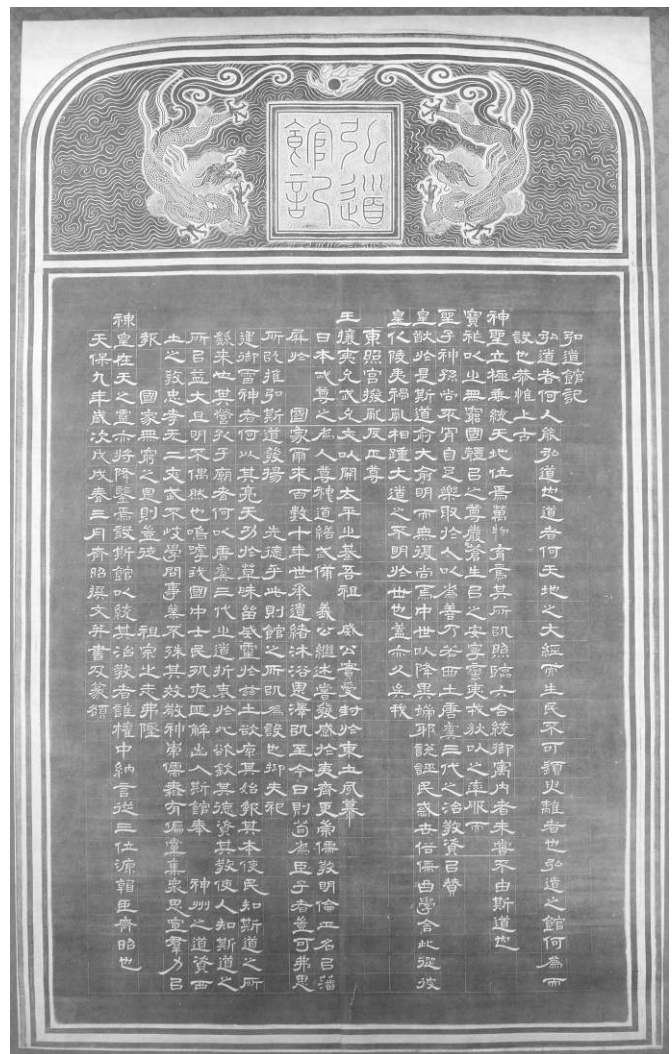 弘道館記
弘道館記
弘道者何人能弘道也道者何天地之大經而生民不可須臾離者也弘道之館何為而
設也恭惟上古
神聖立極垂統天地位焉萬物育焉其所以照臨六合統御寓內者未嘗不由斯道也
寶祚以之無窮國體以之尊嚴蒼生以之安寧蠻夷戎狄以之率服而
聖子神孫尚不肯自足樂取於人以為善乃若西土唐虞三代之治教資以贊
皇猷於是斯道兪大兪明而無復尚焉中世以降異端邪說誣民惑世俗儒曲學舍此從彼
皇化陵夷禍亂相踵大道之不明於世也蓋亦久矣我
東照宮撥亂反正尊
王攘夷允武允文以開太平之基吾祖 威公實受封於東土夙慕
日本武尊之為人尊神道繕武備 義公繼述嘗發感於夷齊更崇儒教明倫正名以藩
屏於 國家爾來百數十年世承遺緒沐浴恩澤以至今日則苟為臣子者豈可弗思
所以推弘斯道發揚 先德乎此則館之所以為設也抑夫祀
建御雷神者何以其亮天功於草昧留威靈於茲土欲原其始報其本使民知斯道之所
繇來也其營孔子廟者何以唐虞三代之道折衷於此欲欽其德資其教使人知斯道之
所以益大且明不偶然也嗚呼我國中士民夙夜匪解出入斯館奉 神州之道資西
土之教忠孝无二文武不岐學問事業不殊其效敬神崇儒無有偏黨集衆思宣群力以
報 國家無窮之恩則豈徒 祖宗之志弗墜
神皇在天之靈亦將降鑒焉設斯館以統其治教者誰權中納言從三位源朝臣齊昭也
天保九年歲次戊戌春三月齊昭撰文并書及篆額